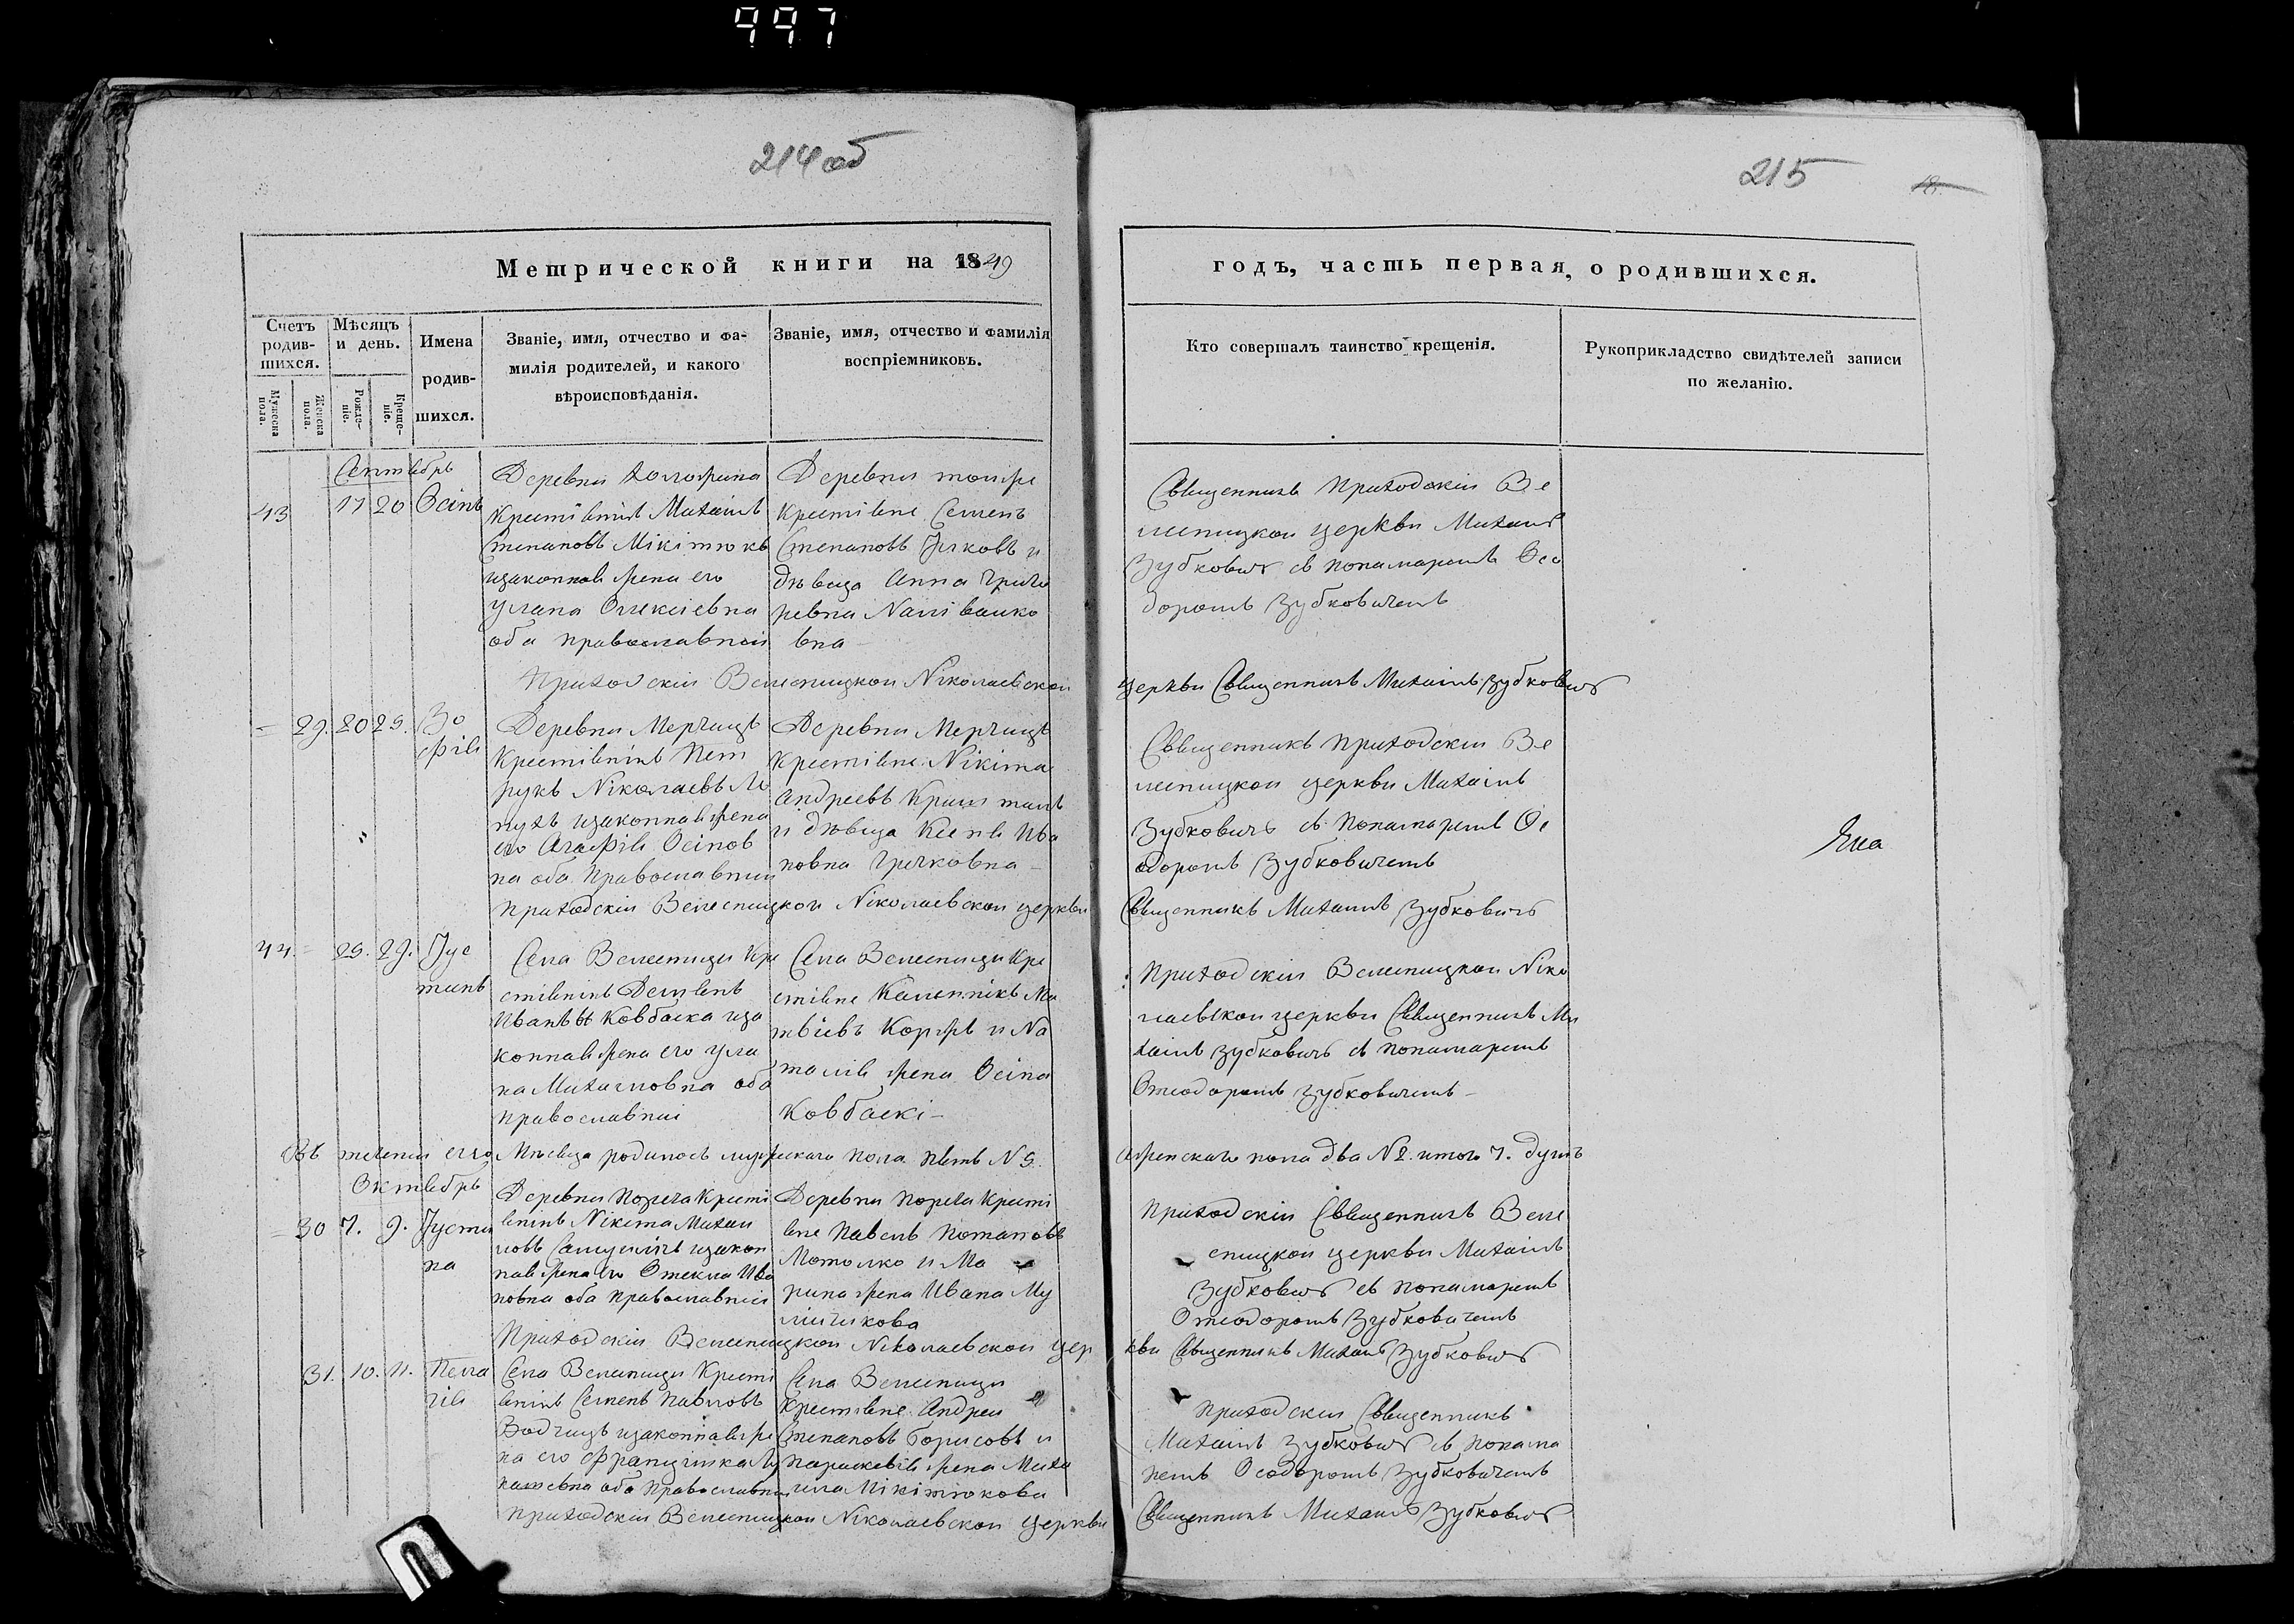 997
214 об
215
Метрической книги на 1849
годъ, часть первая, о родившихся.
Счетъ родив-шихся.
Мужеска пола.
Женска пола.
Мѣсяцъ и день.
Рожде-ніе.
Креще-ніе.
Имена
родив-
шихся.
Званіе, имя, отчество и фа-
милія родителей, и какого
вѣроисповѣданія.
Званіе, имя, отчество и фамилія
воспріемниковъ.
Кто совершалъ таинство крещенія.
Рукоприкладство свидѣтелей записи
по желанію.
Сентябрь
43
17 20 Осіпъ
Деревни
Крестіянінъ Михаилъ
Степановъ Мікітюкъ
изаконная жена его
Уляна Олексіевна
оба православніи
Деревни тоийже
Крестіяне Семенъ
Степановъ и
дѣвица Анна Григо
ревна
вна
Священникъ Приходскіи Ве
лесницкои церкви Михаилъ
Зубковичъ съ пономаремъ Ѳео
доромъ Зубковичемъ
Приходскіи Велесницкои Ніколаевскои
церкви Священникъ Михаилъ Зубковичъ
29. 20 25. Зо
фія
Деревни Мерчицъ
Крестіянінъ Пет
рукъ Ніколаевъ Ло
пухъ изаконная жена
его Агафія Осіпов
на оба Православніи
Деревни Мерчицъ
Крестіяне Нікіта
Андреевъ
и дѣвица Ксенія Ива
новна Гричковна
Священникъ Приходскіи Ве
лесницкои церкви Михаилъ
Зубковичъ съ Пономаремъ Ѳе
одоромъ Зубковичемъ
Приходскіи Велесницкои Ніколаевскои церкви
Священникъ Михаилъ Зубковичъ
44 25. 29. Іус
тинъ
Села Велесницы Кре
стіянінъ Демянъ
Иванѣвъ Ковбаска иза
конная жена его Уля
на Михаиловна оба
православніи
Села Велесницы Кре
стіяне Каленнікъ Ма
твіевъ Коржъ и На
талія жена Осіпа
Ковбаскі
Приходскіи Велесницкои Ніко
лаевскои церкви Священникъ Ми
хаилъ Зубковичъ съ пономаремъ
Ѳтеодоромъ Зубковичемъ
Въ теченіи сего Мѣсяца родилось мужескаго пола пять N 5.
аженскаго пола два N 2. итого 7. душъ
Октябрь
30 7. 9. Іусти
на
Деревни Пореча Кресті
янінъ Нікита Михаи
ловъ изакон
ная жена его Ѳтекла Ива
новна оба православніи
Деревни Пореча Кресті
яне Павелъ Потаповъ
Мотолко и Ма
рина жена Ивана Му
Приходскіи Священникъ Веле
сницкои церкви Михаилъ
Зубковичъ съ пономаремъ
Ѳтеодоромъ Зубковичемъ
Приходскіи Велесницкои Ніколаевскои цер
кви Священникъ Михаилъ Зубковичъ
31. 10. 11. Пела
гія
Села Велесницы Кресті
янінъ Семенъ Павловъ
Водчицъ изаконная же
на его Францишка Лу
кашевна оба православніи
Села Велесницы
Крестіяне Андреи
Степановъ Борисовъ и
Параскевія жена Миха
ила Мікітюкова
Приходскіи Священникъ
Михаилъ Зубковичъ съ понама
ремъ Ѳеодоромъ Зубковичемъ
Приходскіи Велесницкои Ніколаевскои церкви
Священникъ Михаилъ Зубковичъ